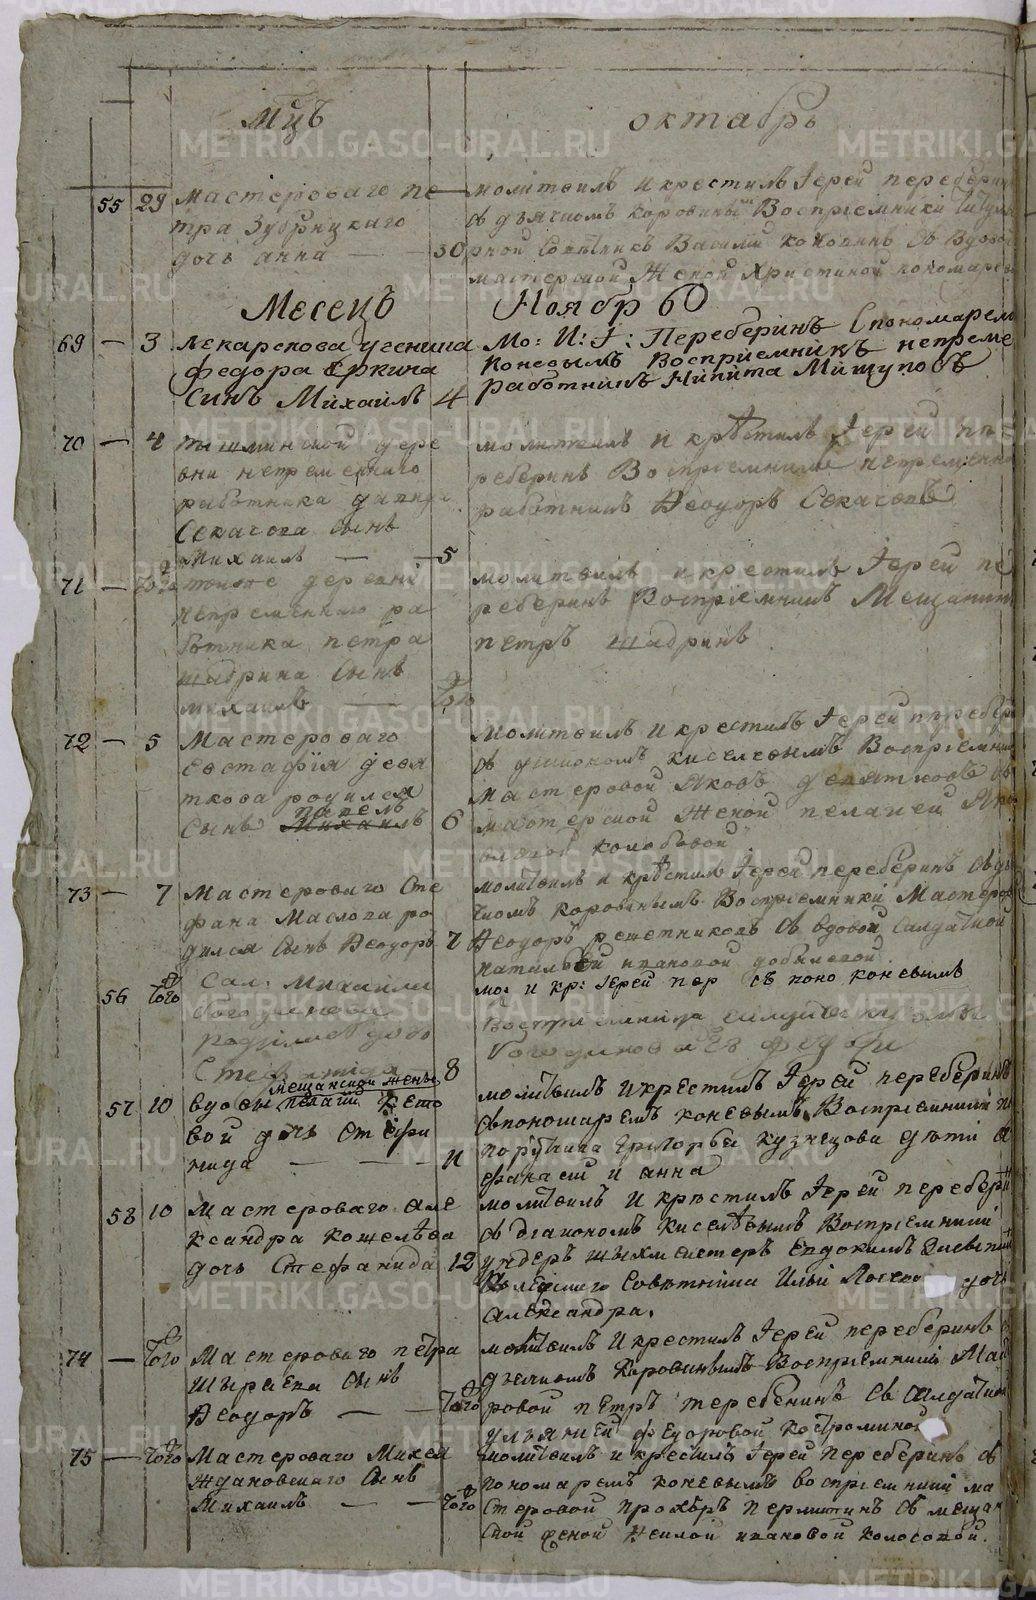 Мцъ октабръ
55 29 мастероваго пе
тра Зубрицкаго
дочь анна 30
молитвилъ и крестилъ Іерей переберин
съ дьячкомъ коровинымъ Воспріемники титуля
рной Советникъ Василий коковинъ съ вдовой
мастерской Женой христиной пономарево
Месецъ Ноябрь
69 3 лекарскова ученика
федора еркина
Синъ Михаилъ 4
Мо: И: Г: Переберинъ Спономарем
Коневымъ Восприемникъ непреме
Работникъ Никита Мишуповъ
70 4 пышминской дере
вни непременнаго
работника
Секасова сынъ
Михаилъ 5
молитвилъ и крѣстилъ Іерей пе
реберинъ Воспріемникъ непременно
работникъ Ѳеодоръ Секасовъ
71 того тоиже деревни
непременнаго ра
ботника петра
шадрина Сынъ
михаилъ того
молитвилъ и крестилъ Іерей пе
реберинъ Воспріемникъ Мещанинъ
петръ шадринъ
72 5 Мастероваго
Евстафія девя
ткова родился
павелъ
Сынъ Михаилъ 6
Молитвилъ и крестилъ Іерей перебер
съ диакономъ киселевымъ Воспріемник
Мастеровой Яковъ девятковъ съ
мастерской Женой пелагией Яко
влевой колобовой
73 7 Мастероваго Сте
фана Маслова ро
дился сынъ Ѳеодоръ 7
молитвилъ и крѣстилъ Іерей переберинъ съ дья
чкомъ коровинымъ Воспріемники Мастеров
Ѳеодоръ решетниковъ съ вдовой Салдатской
ивановой
56 того Сал: Михаила
родилась дочь
Стефанида 8
мо: и кр: Іерей пер съ поно коневымъ
Воспріемница
57 10 вдовы мещанской жены
пелагии
вой дочь Стефа
нида 11
молитвилъ и крестилъ Іерей переберинъ
съ пономаремъ коневымъ Воспріемники по
поручика григорья кузнецова дѣти а
фанасий и анна
58 10 Мастероваго але
ксандра кошелѣва
дочь Стефанида 12
молитвилъ и крѣстилъ Іерей перебери
съ діакономъ киселѣвымъ Воспріемники
ундеръ шыхмейстеръ Евдокимъ
Совѣтника Ильи дочь
александра.
74 того Мастероваго петра
ширяева сынъ
Ѳеодоръ того
молитвилъ и крестилъ Іерей переберинъ с
дьячкомъ коровинымъ Воспріемники Маст
ровой пѣтръ теребенинъ съ Салдатской
ульянией федоровой костроминой
75 того Мастероваго Михея
ждановскаго сынъ
Михаилъ того
молитвилъ и крестилъ Іерей переберинъ съ
пономаремъ коневымъ воспріемники ма
стеровой прохоръ пермитинъ съ мещан
ской женой неилой ивановой колосовой.
METRIKI.GASO-URAL.RU